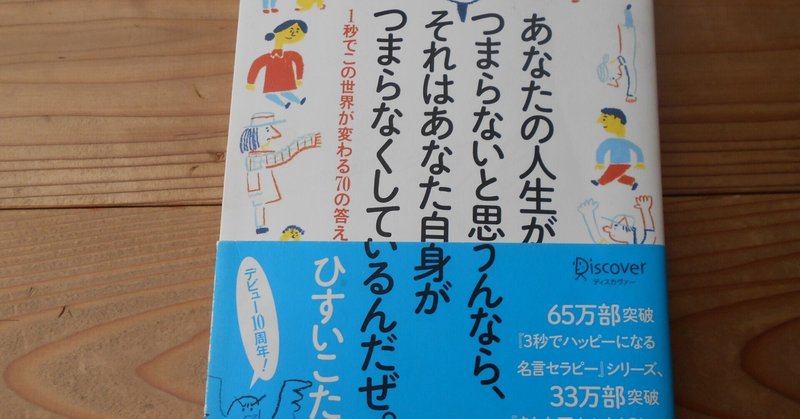 あなたの人生が
つまらないと思うんなら、
それはあなた自身が
つまらなくしているんだぜ。
1秒でこの世界が変わる70の答え
ひすいこた
デビュー10周年!
Discover
ディスカヴァー
65万部突破
『3秒でハッピーになる
名言セラピー』シリーズ、
33万部突破